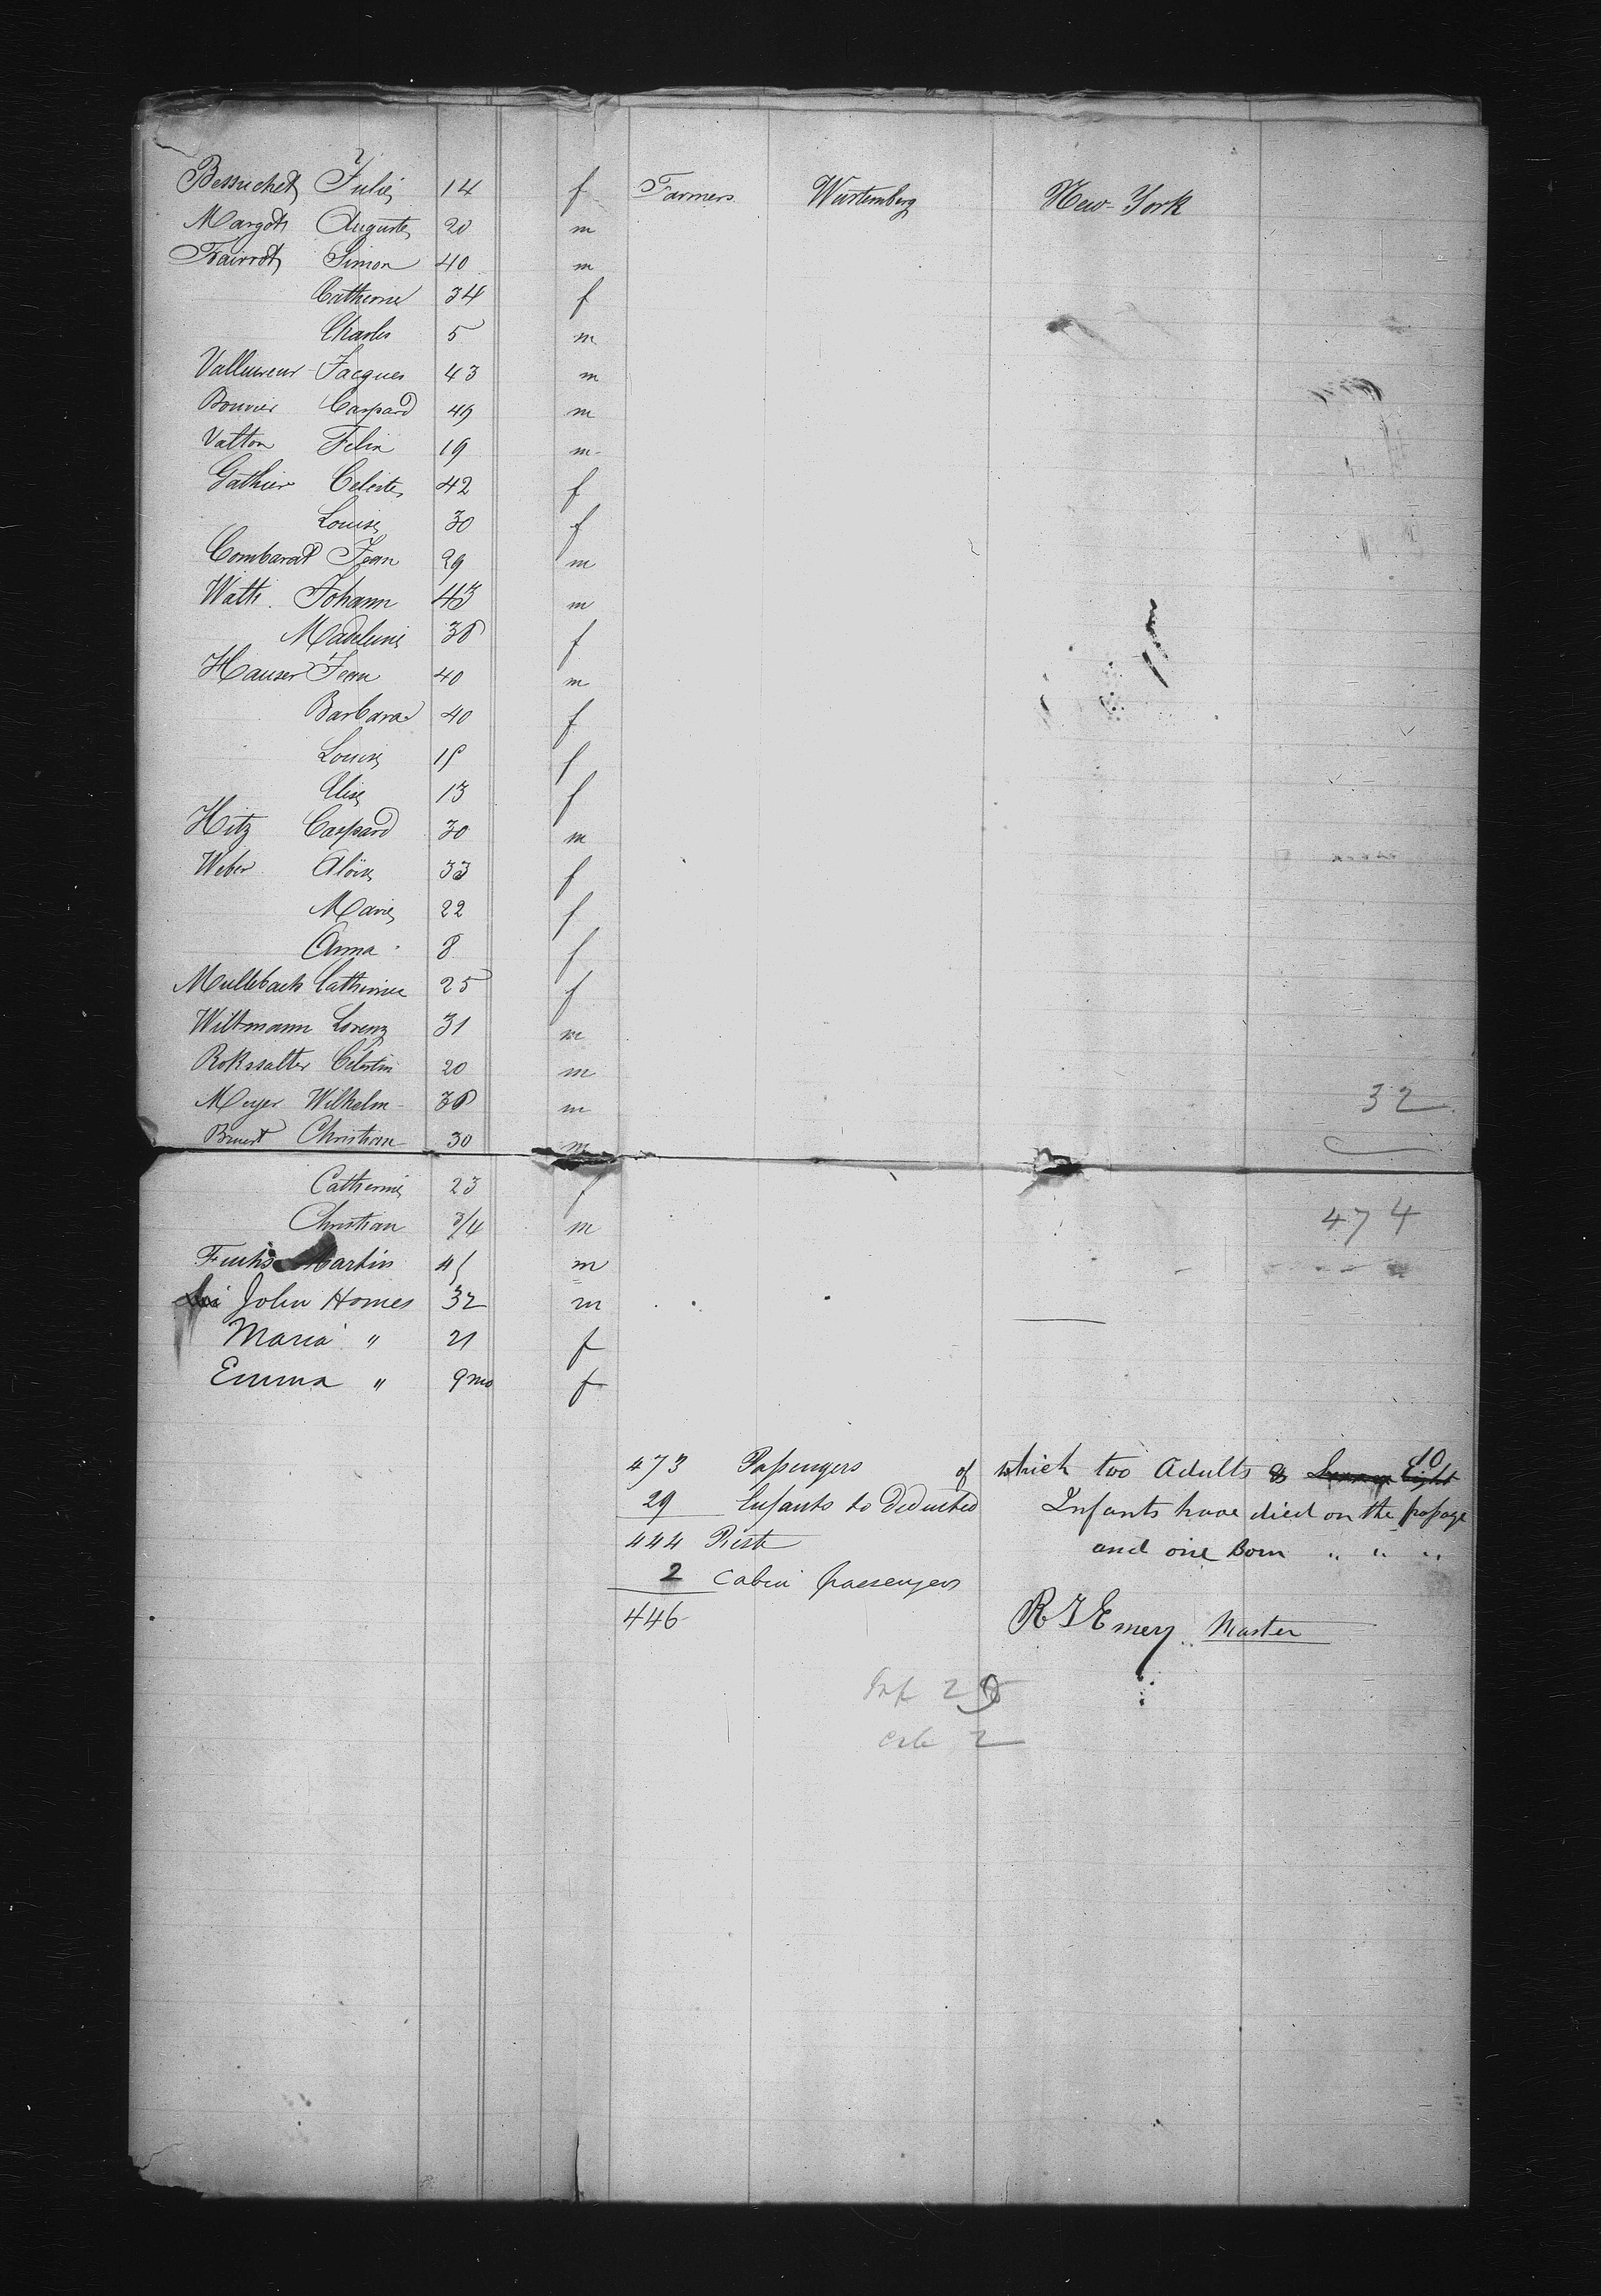 Bessuchet Julie 14 f Farmers Würtemberg New-York
Margot Auguste 20 m
Simon 40 m
Catherine 34 f
Charles 5 m
Jacques 43 m
Bouvier Caspard 49 m
Valton Felix 19 m
Gathier Celeste 42 f
Louise 30 f
Combarat Jean 29 m
Watti Johann 43 m
Madeleine f
Hauser Jean 40 m
Barbara 40 f
Louise f
Elise 13 f
Hitz Caspard 30 m
Weber Aloïse 33 f
Marie 22 f
Anna 8 f
Mullebach Catherine 25 f
Wiltmann Lorenz 31 m
Rokssalter Célestin 20 m
Meyer Wilhelm m 32
Christian 30 m
Catherine 23 f
Christian 3/4 m 474
Fuchs Martin 45 m
John Homes 32 m
Maria " 21 f
Emma " 9 mo f
473 Passengers of which two Adults & Eight 10
29 Infants to Deducted Infants have died on the passage
444 Reste and one Born " " "
2 Cabin passengers
446 R J Emery Master
Inf 29
Cab 2